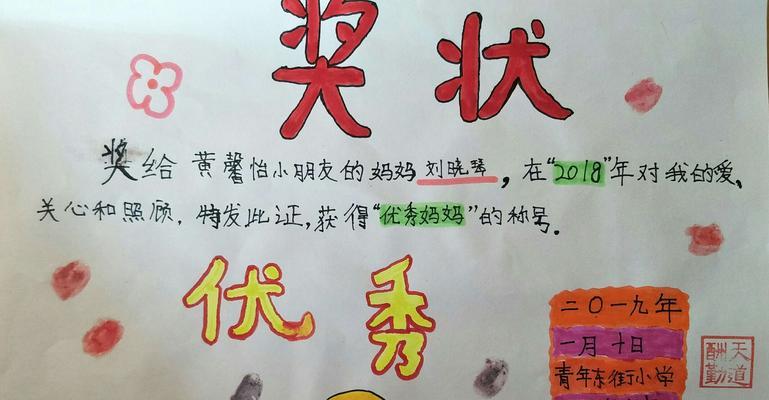 奖状
奖给 黄馨怡小朋友的妈妈 刘晓琴，在“2018”年对我的爱、
关心和照顾，特发此证，获得“优秀妈妈”的称号。
优秀
二〇一九年
一月十日
青年东街小学
天道
酬勤